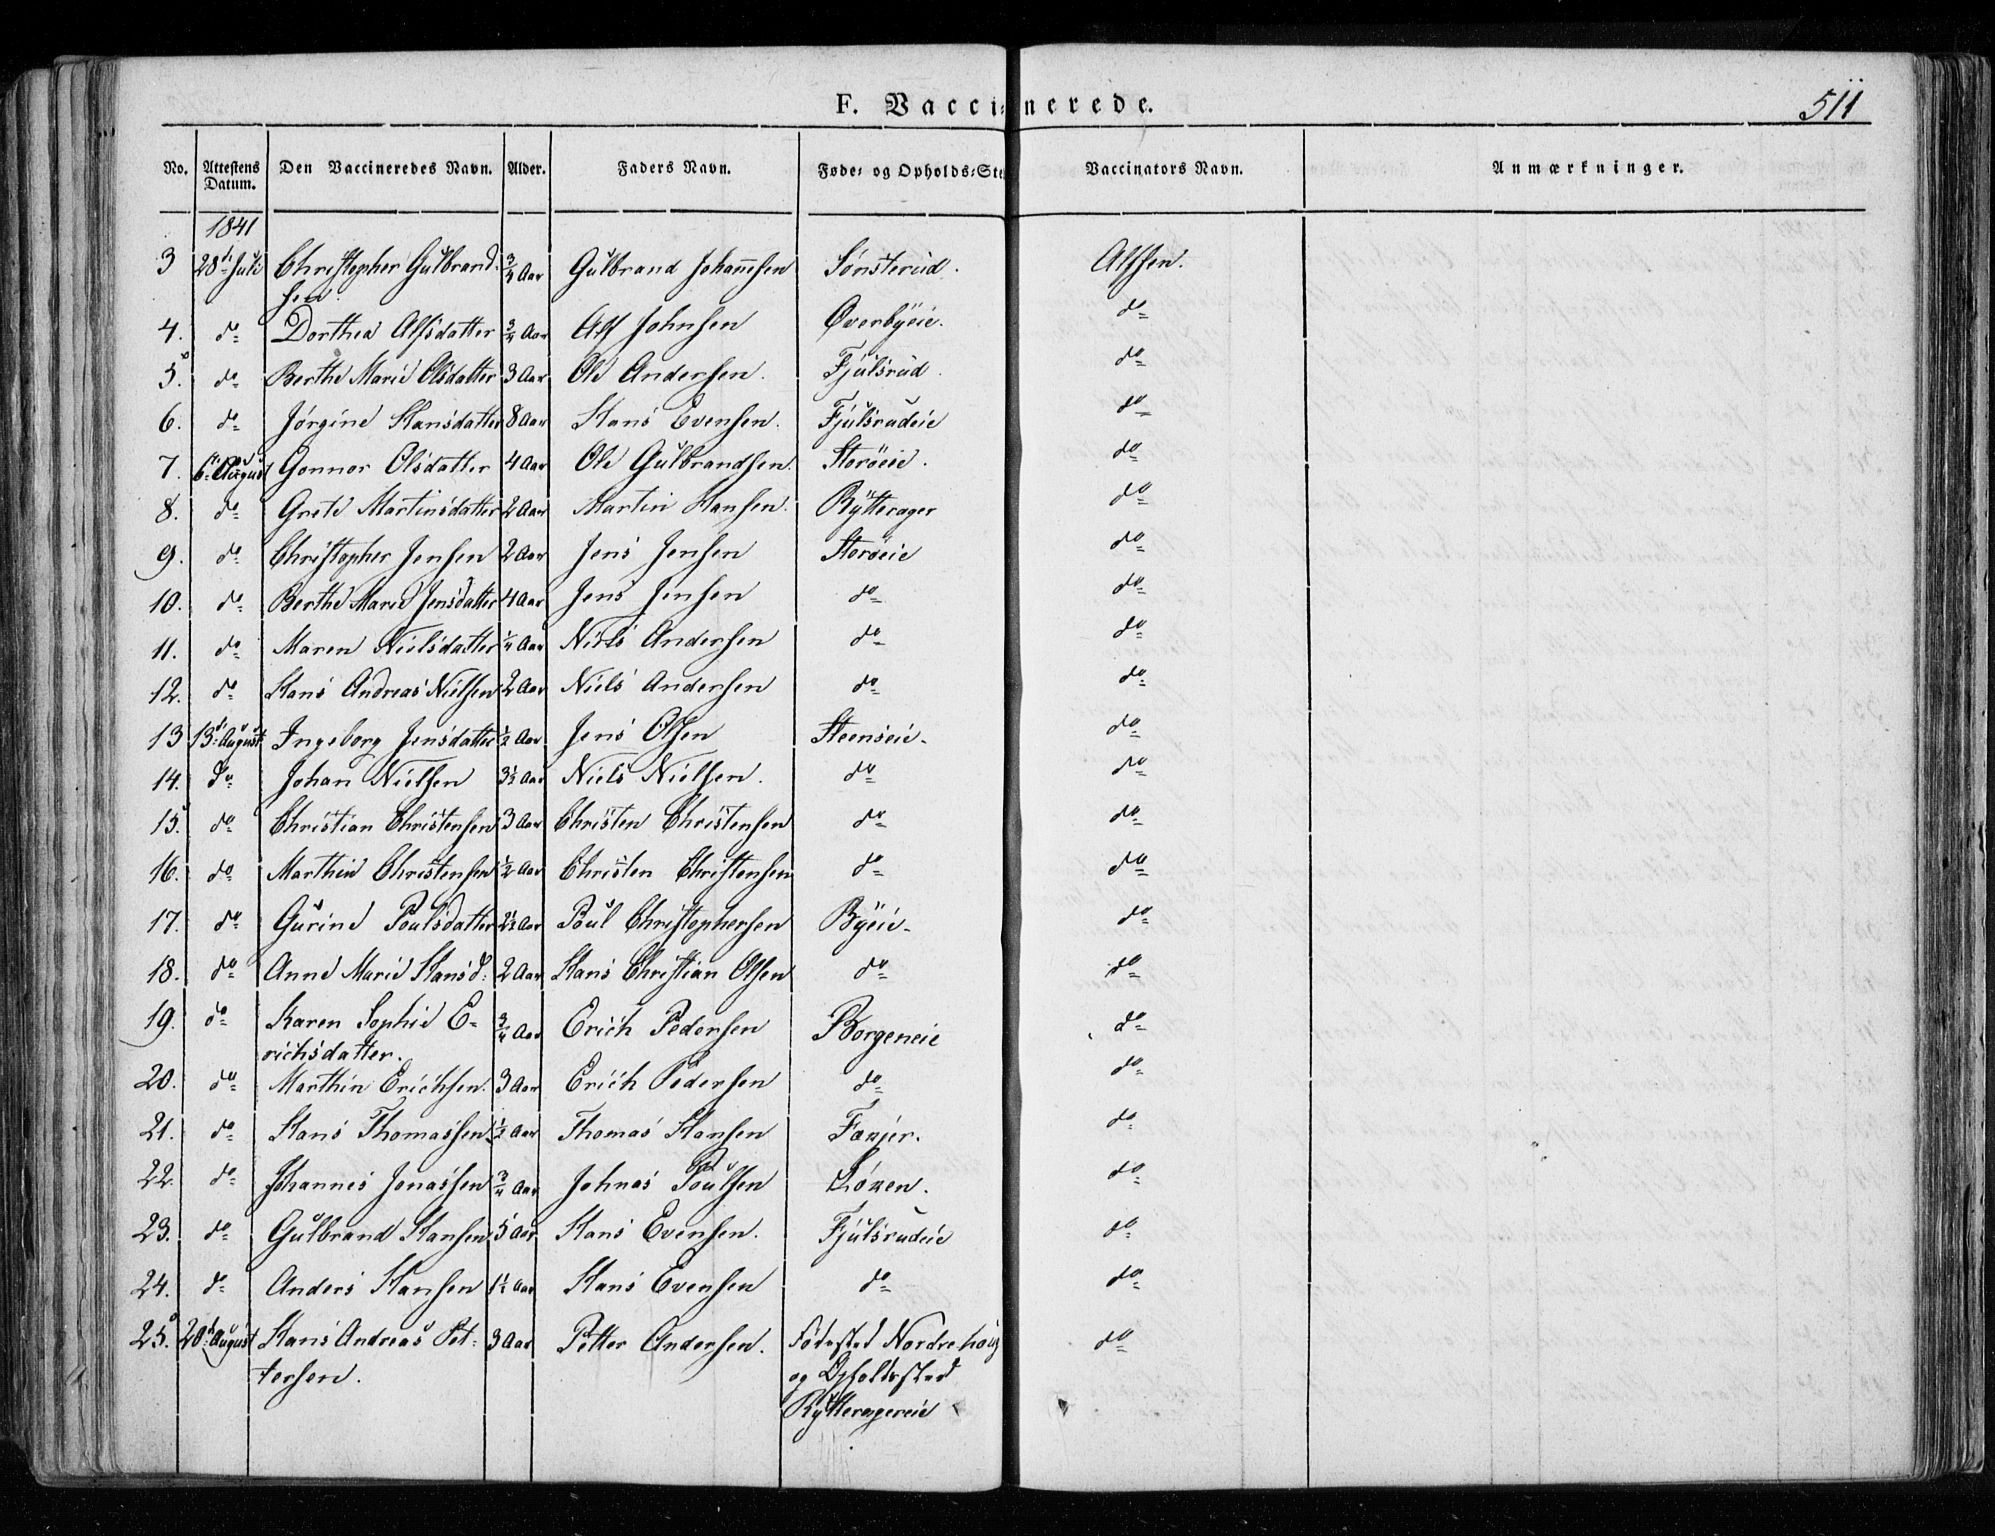 F. Vaccinerede.
511
No. Attestens Datum. Den Vaccineredes Navn. Alder. Faders Navn. Føde- og Opholds-Ste Vaccinators Navn. Anmærkninger.
1841
3 28de Juli Christopher Gulbrand- ¾ Aar Gulbrand Johannesen Sønsterud. Alfsen.
sen.
4. do Dorthea Alfsdatter ¾ Aar Alf Johnsen Øverbyeie. do
5. do Berthe Marie Olsdatter 3 Aar Ole Andersen. Fjulsrud. do
6. do Jørgine Hansdatter 8 Aar Hans Evensen. Fjulsrudeie do
7. 6te August Gonnor Olsdatter 4 Aar Ole Gulbrandsen. Storøeie. do
8. do Grete Martinsdatter 2 Aar Martin Hansen. Rytterager do
9. do Christopher Jensen 2 Aar Jens Jensen Storøeie do
10. do Berthe Marie Jensdatter 4 Aar Jens Jensen do do
11. do Maren Nielsdatter ¼ Aar Niels Andersen do do
12. do Hans Andreas Nielsen 2 Aar Niels Andersen do do
13 13de August Ingeborg Jensdatter ½ Aar Jens Olsen Steenseie. do
14. do Johan Nielsen 3½ Aar Niels Nielsen. do do
15. do Christian Christensen 3 Aar Christen Christensen do do
16. do Marthin Christensen ½ Aar Christen Christensen do do
17. do Gurine Poulsdatter 2½ Aar Poul Christophersen Byeie. do
18. do Anne Marie Hansd. 2 Aar Hans Christian Olsen do do
19. do Karen Sophie E- ¾ Aar Erich Pedersen Borgeneie do
richsdatter.
20. do Marthin Erichsen. 3 Aar Erich Pedersen do do
21. do Hans Thomassen ½ Aar Thomas Hansen Fænjer. do
22. do Johannes Jonassen ¾ Aar Johnas Poulsen Løken. do
23. do Gulbrand Hansen 5 Aar Hans Evensen. Fjulsrudeie do
24. do Anders Hansen 1½ Aar Hans Evensen do do
25. 20de August Hans Andreas Pet- 3 Aar Petter Andersen. Fødested Nordrehoug do
tersen. og Opholdssted
Rytteragereie